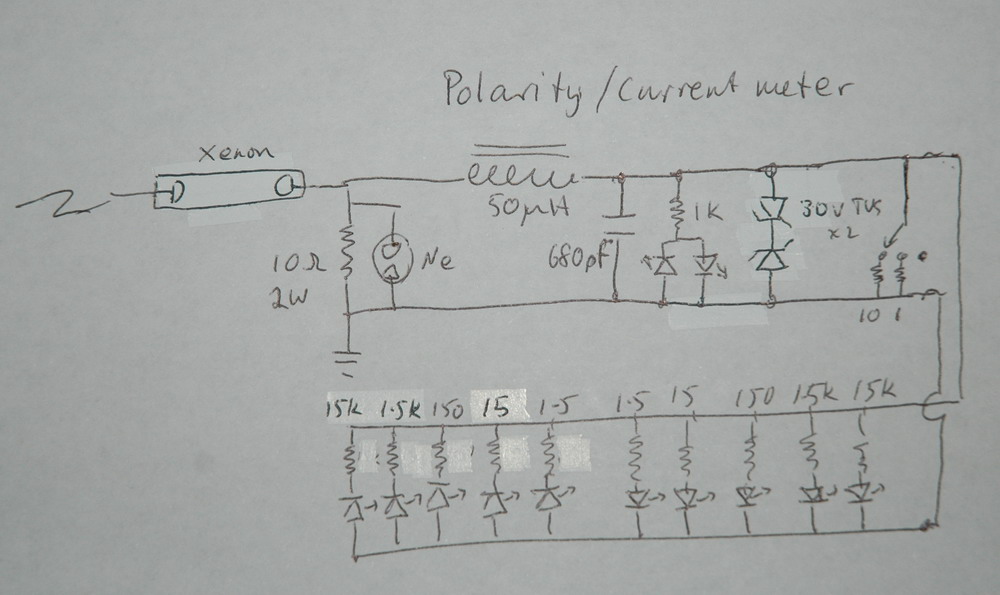 Polarity/Current meter
Xenon
50µH
10Ω
2W
Ne
680pf
1K
30V TVS
x2
10 1
15k 1.5k 150 15 1.5 1.5 15 150 1.5k 15k